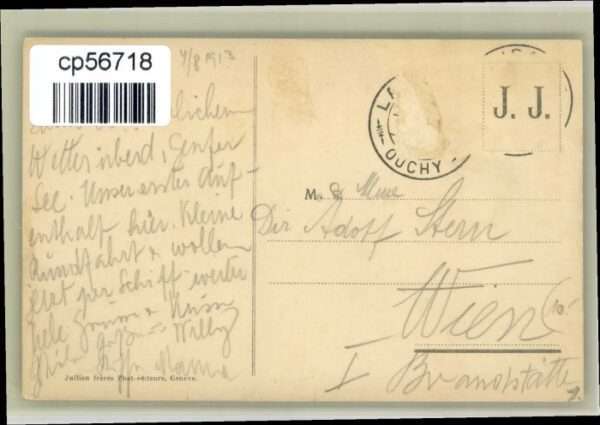 cp56718
4/8 1913
lichem
Wetter überd. Genfer
See. Unser erster Auf-
enthalt hier. Kleine
Rundfahrt & wollen
jetzt per Schiff weiter
Küsse
Willy
Mama
Jullien frères Phot.-éditeurs, Genève.
OUCHY
J. J.
M. & Mme
Dir Adolf Stern
Wien
I Brandstätte